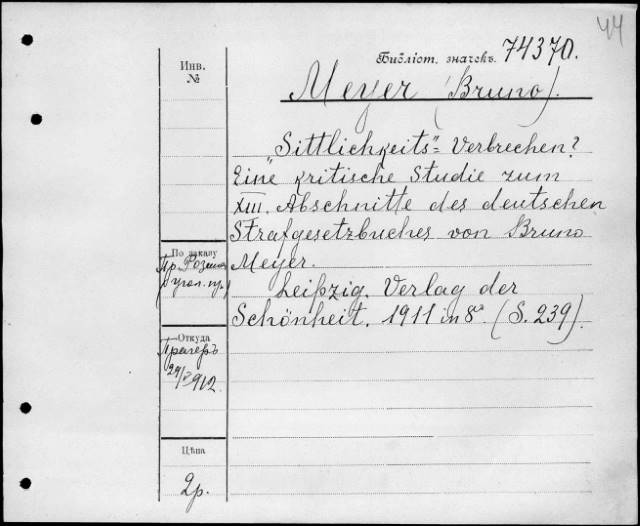 44
Библіот. значекъ. 74370.
Инв.
№
Meyer (Bruno).
"Sittlichkeits"= Verbrechen?
Eine kritische Studie zum
XIII. Abschnitte des deutschen
Strafgesetzbuches von Bruno
Meyer.
Leipzig. Verlag der
Schönheit. 1911 in 8º. (S. 239).
По заказу
Пр. Розина
угол. пр.)
Откуда
Прагеръ
912.
Цѣна
2р.